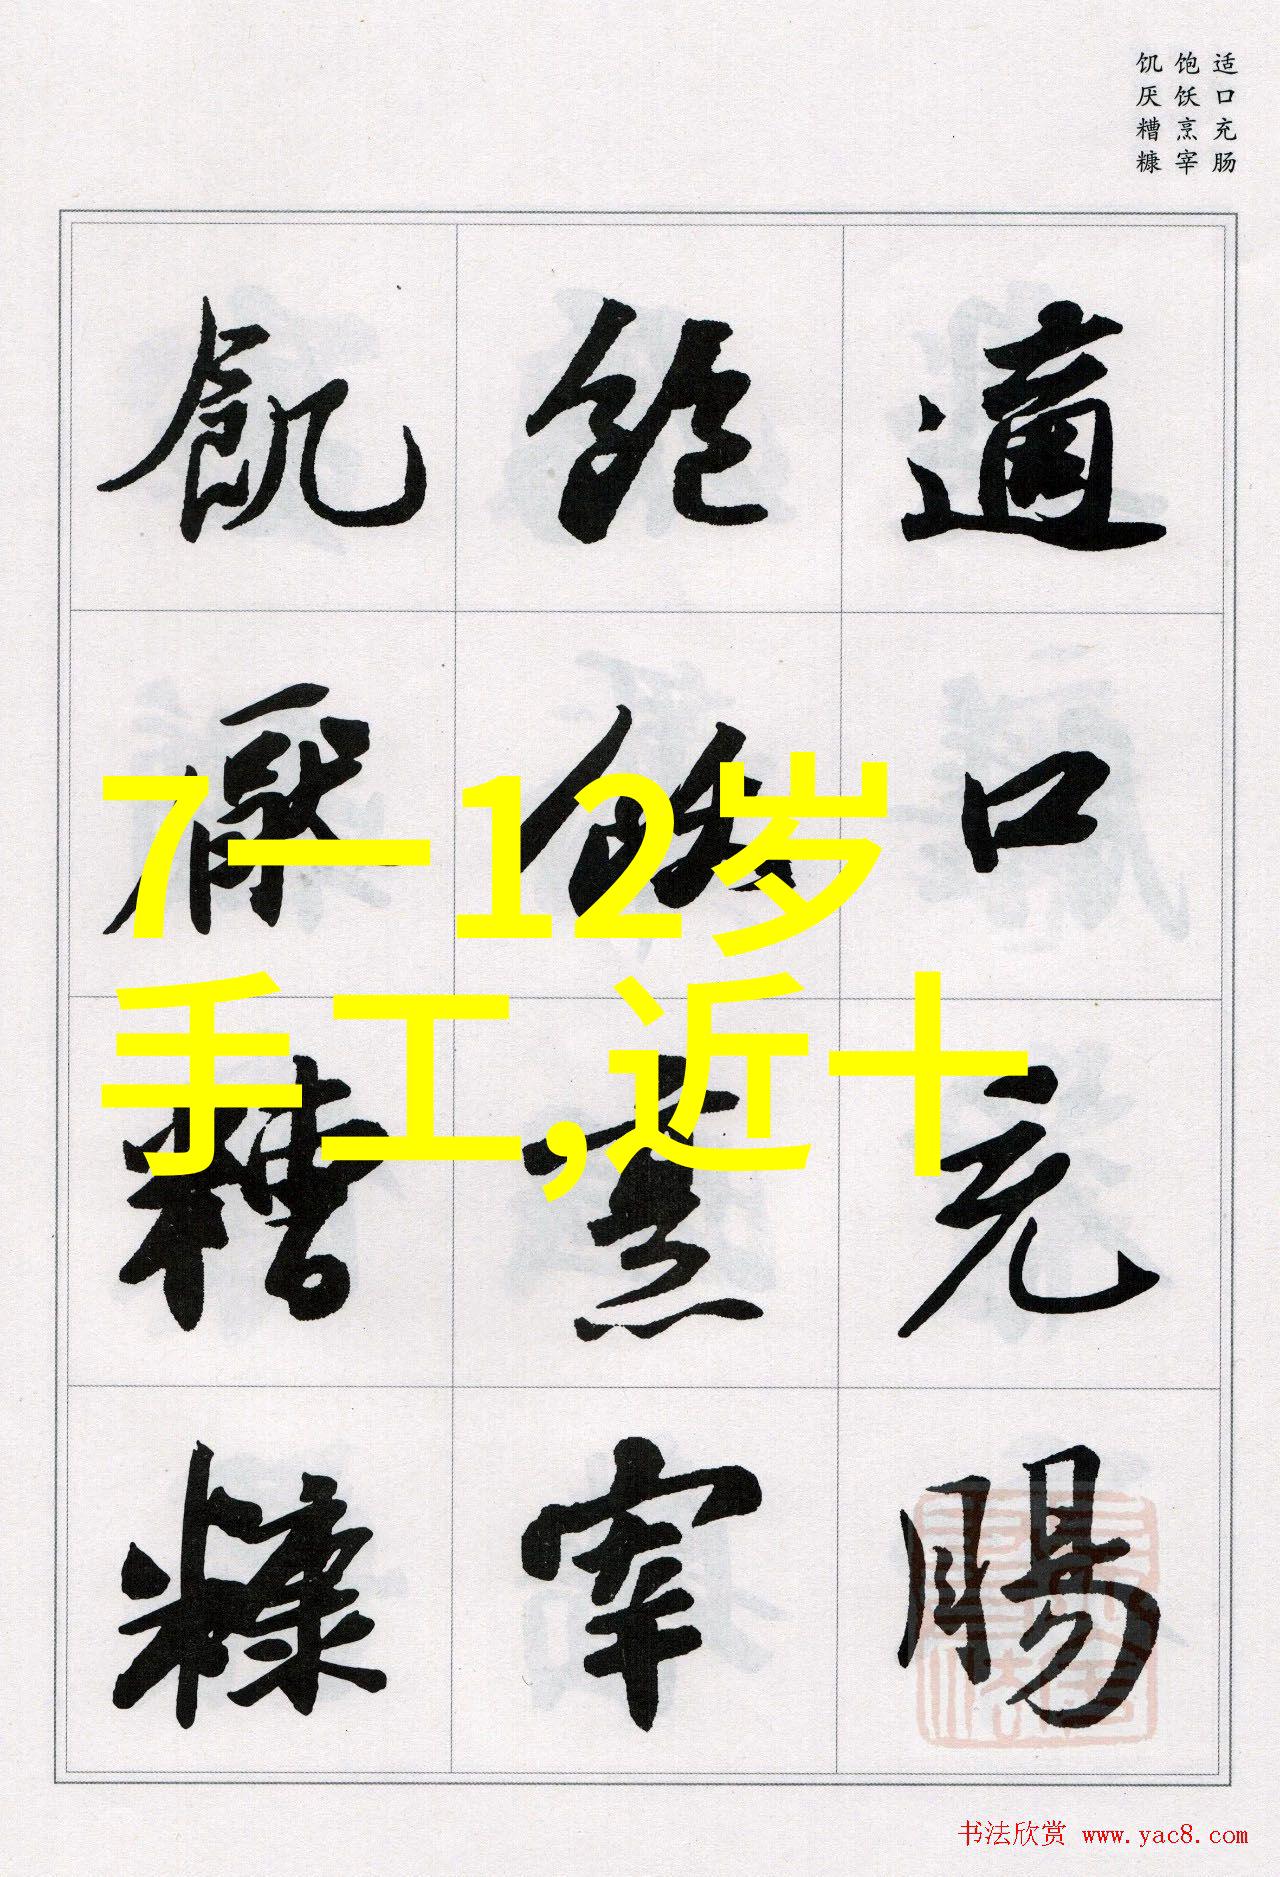 适口充肠
饱饫烹宰
饥厌糟糠
適口充腸
飽飫烹宰
飢厭糟糠
7一12岁
手工,近十
书法欣赏 www.yac8.com